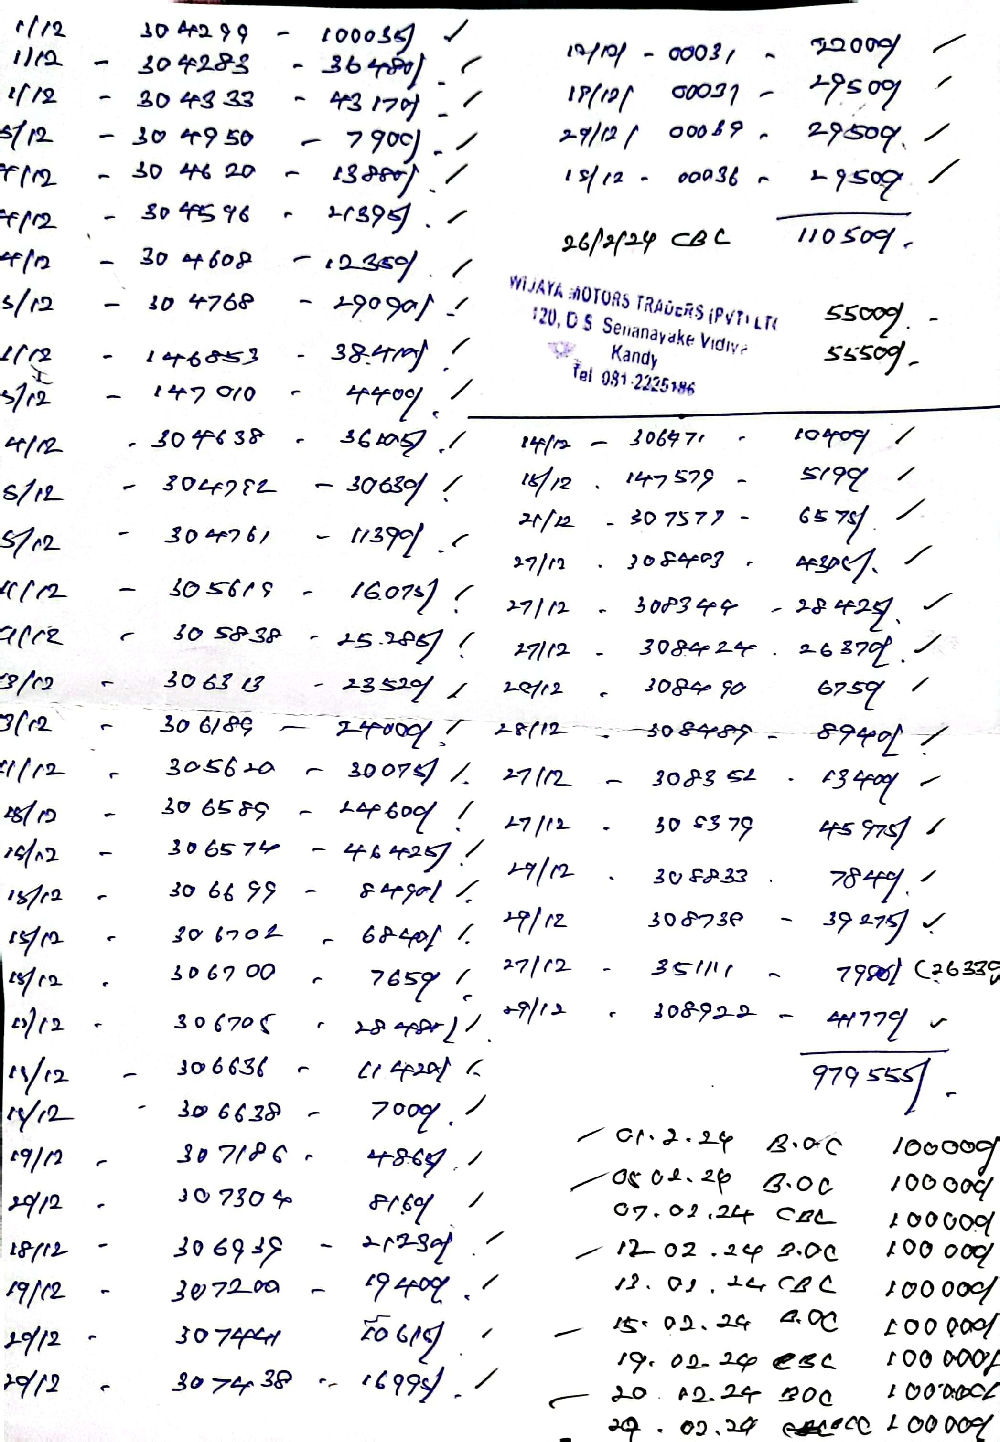 1/12 304299 - 100035/ ✓
1/12 - 304283 - 36480/. ✓
1/12 - 304333 - 43170/ ✓
5/12 - 304950 - 7900/. ✓
4/12 - 304620 - 13880/. ✓
4/12 - 304596 - 21395/. ✓
4/12 - 304608 - 12350/. ✓
5/12 - 304768 - 29090/. ✓
1/12 - 146853 - 38.410/ ✓
5/12 - 147010 - 4400/. ✓
4/12 - 304638 - 36105/. ✓
5/12 - 304792 - 30630/ ✓
5/12 - 304761 - 11390/. ✓
11/12 - 305619 - 16.075/ ✓
11/12 - 305838 - 25.285/ ✓
13/12 - 306313 - 23520/ ✓
13/12 - 306189 - 24000/ ✓
11/12 - 305620 - 30075/ ✓
15/12 - 306589 - 24600/ ✓
15/12 - 306574 - 46425/ ✓
15/12 - 306699 - 8490/ ✓
15/12 - 306702 - 6840/ ✓
15/12 - 306700 - 7650/ ✓
15/12 - 306705 - 28480/ ✓
15/12 - 306636 - 11420/ ✓
15/12 - 306638 - 7000/. ✓
19/12 - 307186 - 4865/. ✓
20/12 - 307304 8160/ ✓
18/12 - 306939 - 21230/. ✓
19/12 - 307200 - 19400/. ✓
20/12 - 307441 10615/ ✓
20/12 - 307438 - 16995/. ✓
12/12/ - 00031 - 22000/ ✓
18/12/ 00037 - 29500/ ✓
29/12/ 00039 - 29500/. ✓
15/12 - 00036 - 29500/ ✓
26/2/24 CBC 110500/.
WIJAYA MOTORS TRADERS (PVT) LTD
120, D S Senanayake Vidiya
Kandy
Tel 081-2225186
55000/. -
55500/. -
14/12 - 306471 - 10400/ ✓
15/12 - 147579 - 5190/ ✓
21/12 - 307577 - 6575/. ✓
27/12 - 308403 - 4305/. ✓
27/12 - 308344 - 28425/. ✓
27/12 - 308424 - 26370/. ✓
28/12 - 308490 6750/ ✓
28/12 - 308489 - 8940/ ✓
27/12 - 308352 - 13400/ ✓
27/12 - 308379 45975/ ✓
29/12 - 308833 - 7840/. ✓
29/12 308738 - 39275/ ✓
27/12 - 351111 - 7980/ (26339
29/12 - 308922 - 41770/ ✓
979555/. -
- 01.2.24 B.O.C 100000/
- 05.02.24 B.OC 100000/
07.02.24 CBC 100000/
- 12-02.24 B.OC 100000/
13.02.24 CBC 100000/
- 15.02.24 B.OC 100000/
19.02.24 CBC 100000/
- 20.02.24 BOC 100000/